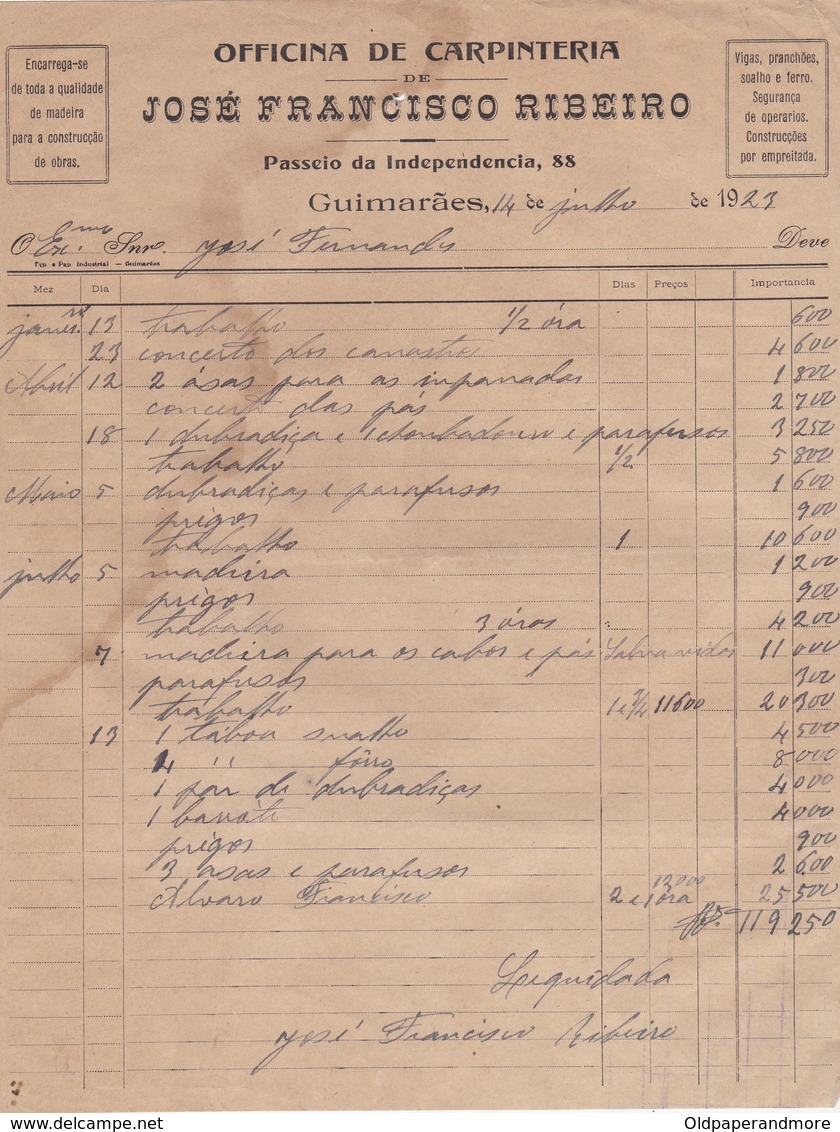 Encarrega-se
de toda a qualidade
de madeira
para a construcção
de obras.
OFFICINA DE CARPINTERIA
DE
JOSÉ FRANCISCO RIBEIRO
Passeio da Independencia, 88
Vigas, pranchões,
soalho e ferro.
Segurança
de operarios.
Construcções
por empreitada.
Guimarães, 14 de julho de 1923
O Exc.mo Snr. José Fernandes Deve
Typ. e Pap. Industrial — Guimarães
Mez Dia Dias Preços Importancia
janeiro 13 trabalho 1/2 óra 600
23 concerto dos canastros 4 600
Abril 12 2 ásas para as impanadas 1 800
concerto das pás 2 700
18 1 dubradiça e 1 e parafusos 3 250
trabalho 1/2 5 800
Maio 5 dubradiças e parafusos 1 600
prègos 900
trabalho 1 10 600
julho 5 madeira 1 200
prègos 900
trabalho 3 óras 4 200
7 madeira para os cabos e pás Salva vidas 11 000
parafusos 300
trabalho 1 e 3/4 11600 20 300
13 1 táboa sualho 4 500
4 " fôrro 8 000
1 pár de dubradiças 4 000
1 barróte 4 000
prègos 900
3 asas e parafusos 2 600
Alvaro Francisco 2 e 1 óra 12000 25 500
119 250
Lequidada
José Francisco Ribeiro
Oldpaperandmore